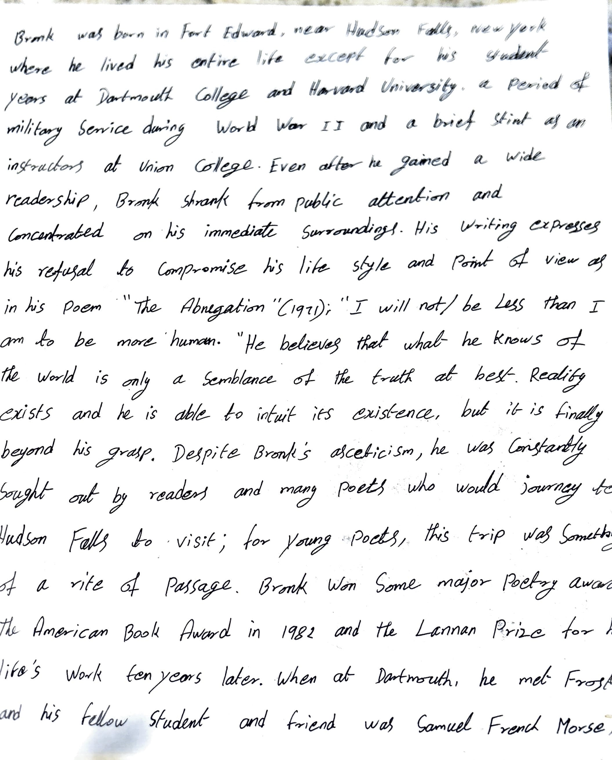 Bronk was born in Fort Edward, near Hudson Falls, new york
where he lived his entire life except for his student
years at Dartmouth College and Harvard University. a period of
military Service during World War II and a brief stint as an
instructors at Union College. Even after he gained a wide
readership, Bronk shrank from public attention and
Concentrated on his immediate Surroundings. His Writing expresses
his refusal to Compromise his life style and Point of view as
in his Poem "The Abnegation" (1971); "I will not/ be Less than I
am to be more human. "He believes that what he knows of
the world is only a Semblance of the truth at best. Reality
exists and he is able to intuit its existence, but it is finally
beyond his grasp. Despite Bronk's asceticism, he was Constantly
Sought out by readers and many Poets who would journey to
Hudson Falls to visit; for young Poets, this trip was
of a rite of Passage. Bronk Won Some major Poetry
the American Book Award in 1982 and the Lannan Prize for
life's Work ten years later. When at Dartmouth, he met Frost
and his fellow Student and friend was Samuel French Morse,